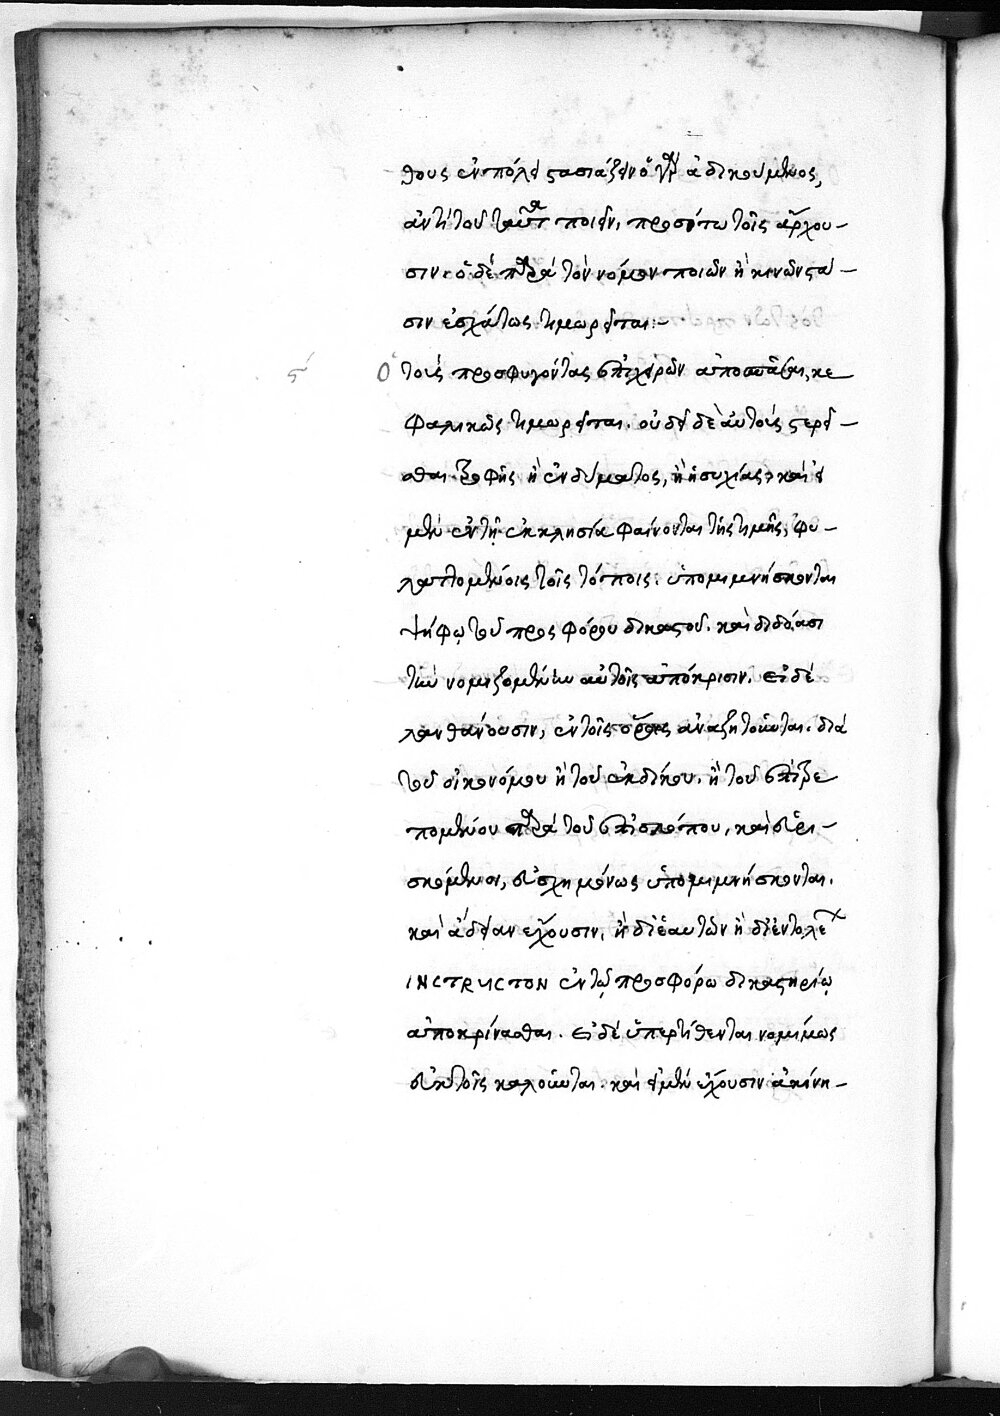 θους ἐν πόλει στασιάζειν· ὁ γὰρ ἀδικούμενος,
ἀντὶ τοῦ ταῦτα ποιεῖν, προσίτω τοῖς ἄρχου-
σιν· ὁ δὲ παρὰ τὸν νόμον ποιῶν ἢ κινῶν στά-
σιν ἐσχάτως τιμωρεῖται:-
ϛ Ὁ τοὺς προσφυγόντας ἐπιχειρῶν ἀποσπάσαι, κε
φαλικῶς τιμωρεῖται. οὐδεὶ δὲ αὐτοὺς στερεῖ-
σθαι τροφῆς ἢ ἐνδύματος, ἢ ἡσυχίας· καὶ εἰ
μὲν ἐν τῇ ἐκκλησίᾳ φαίνονται τῆς τιμῆς, φυ-
λαττομένοις τοῖς τόποις· ὑπομιμνήσκονται
ψήφῳ τοῦ προσφόρου δικαστοῦ. καὶ διδόασι
τὴν νομιζομένην αὐτοῖς ἀπόκρισιν. εἰ δὲ
λανθάνουσιν, ἐν τοῖς ὅροις ἀναζητοῦνται. διὰ
τοῦ οἰκονόμου ἢ τοῦ ἐκδίκου. ἢ τοῦ ἐπιτρε
πομένου παρὰ τοῦ ἐπισκόπου, καὶ εὑρι-
σκόμενοι, εὐσχημόνως ὑπομιμνήσκονται.
καὶ ἄδειαν ἔχουσιν, ἢ δι' ἑαυτῶν ἢ δι' ἐντολέως
INCTRUCTON ἐν τῷ προσφόρῳ δικαστηρίῳ
ἀποκρίνασθαι. εἰ δὲ ὑπερτίθενται νομίμως
ἐδίκτοις καλοῦνται. καὶ εἰ μὲν ἔχουσιν ἀκίνη-